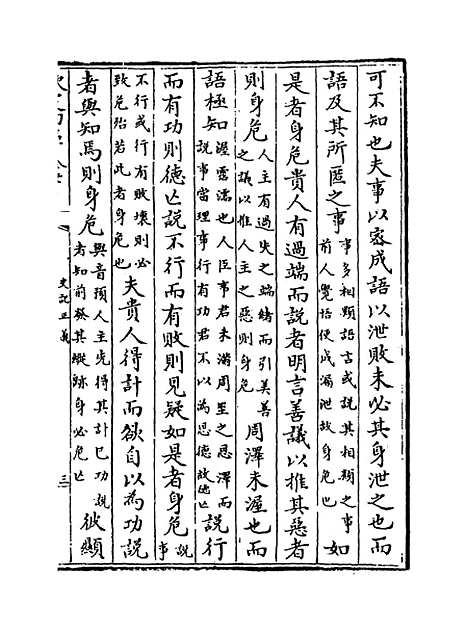 可不知也夫事以宻成語以泄敗未必其身泄之也而
語及其所匿之事事多相類語言或説其相類之事前人覺悟便成漏泄故身危也如
是者身危貴人有過端而説者明言善議以推其惡者
則身危人主有過失之端緒而引美善之議以推人主之惡則身危周澤未渥也而
語極知渥霑濡也人臣事君未滿周至之恩澤而説事當理事行有功君不以為恩徳故徳亡説行
而有功則徳亡説不行而有敗則見疑如是者身危説事
不行或行有敗壞則必致危殆若此者身危也夫貴人得計而欲自以為功説
者與知焉則身危與音預人主先得其計已功説者知前發其縱跡身必危亡彼顯
史記正義
三